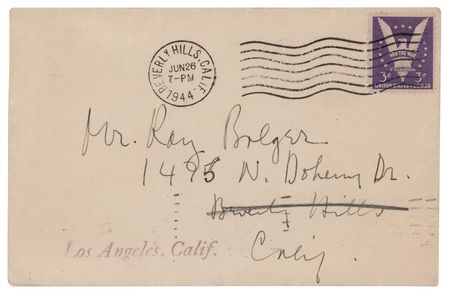 BEVERLY HILLS, CALIF.
JUN 26
7-PM
1944
WIN THE WAR
3¢ 3¢
UNITED STATES POSTAGE
Mr. Ray Bolger
1495 N. Doheny Dr.
Beverly Hills
Los Angeles, Calif.
Calif.